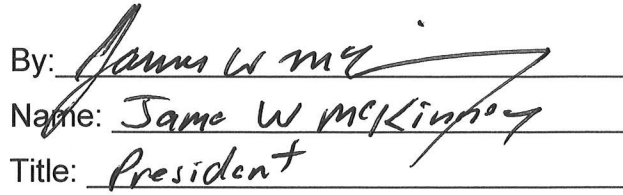 By: James W Mc
Name: James W McKinney
Title: President